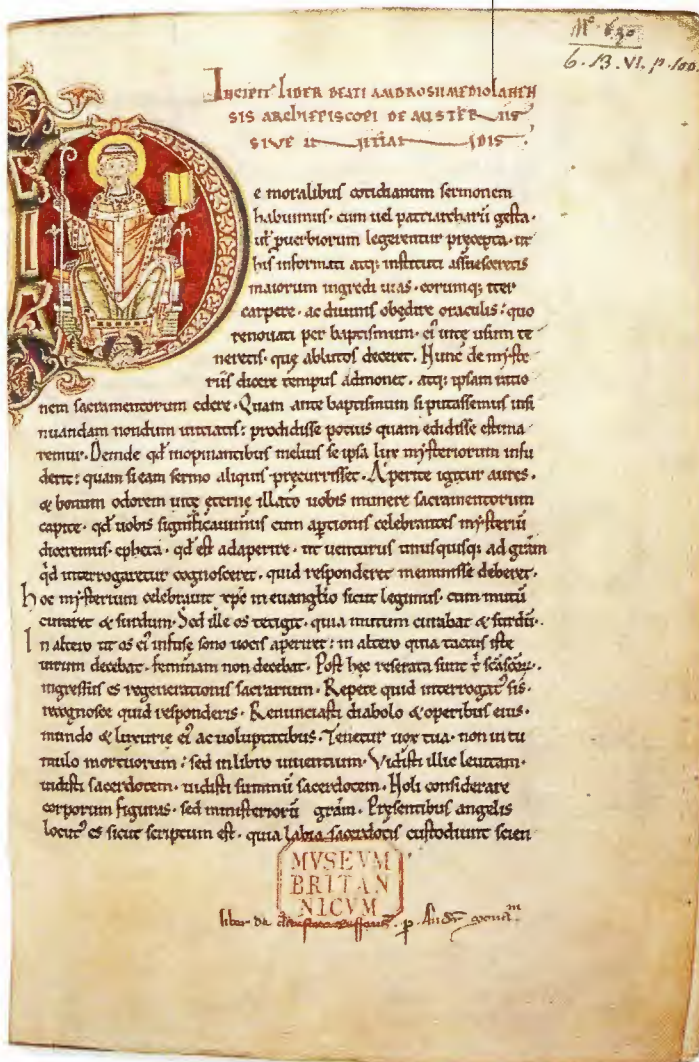 Mº 630
6. 13. VI. p. 100.
INCIPIT LIBER BEATI AMBROSII MEDIOLANEN
SIS ARCHIEPISCOPI DE MISTERIIS
SIVE INITIANDIS.
e moralibus cotidianum sermonem
habuimus. cum uel patriarcharū gesta.
ut puerbiorum legerentur pręcepta. ut
his informati atq; instituti assuesceretis
maiorum ingredi uias. eorumq; iter
carpere. ac diuinis obędire oraculis: quo
renouati per baptismum. ei uitę usum te
neretis. quę ablutos deceret. Nunc de myste
riis dicere tempus admonet. atq; ipsam ratio
nem sacramentorum edere. Quam ante baptismum si putassemus insi
nuandam nondum initiatis: prodidisse potius quam edidisse estima
remur. Deinde qd inopinantibus melius se ipsa lux mysteriorum infu
derit: quam si eam sermo aliquis pręcurrisset. Aperite igitur aures.
& bonum odorem uitę ęternę illato uobis munere sacramentorum
capite. qd uobis significauimus cum aptionis celebrantes mysteriū
diceremus. epheta. qd est adaperire. ut uenturus unusquisq; ad grām
qd interrogaretur cognosceret. quid responderet meminisse deberet.
hoc mysterium celebrauit xpc in euanglio sicut legimus. cum mutū
curaret & surdum. Sed ille os tetigit. quia mutum curabat & surdū.
In altero ut os ei infuse sono uocis aperiret: in altero quia tactus iste
uirum decebat. feminam non decebat. Post hęc reserata sunt t scāscōrȝ.
ingressus es regenerationis sacrarium. Repete quid interrogat' sis.
recognosce quid responderis. Renunciasti diabolo & operibus eius.
mundo & luxurie ei' ac uoluptatibus. Tenetur uox tua. non in tu
mulo mortuorum: sed in libro uiuentium. Vidisti illic leuitam.
uidisti sacerdotem. uidisti summū sacerdotem. Noli considerare
corporum figuras. sed ministeriorū grām. Pręsentibus angelis
locut' es sicut scriptum est. quia labia sacerdotis custodiunt scien
MVSEVM
BRITAN
NICVM
liber da p. Andr.